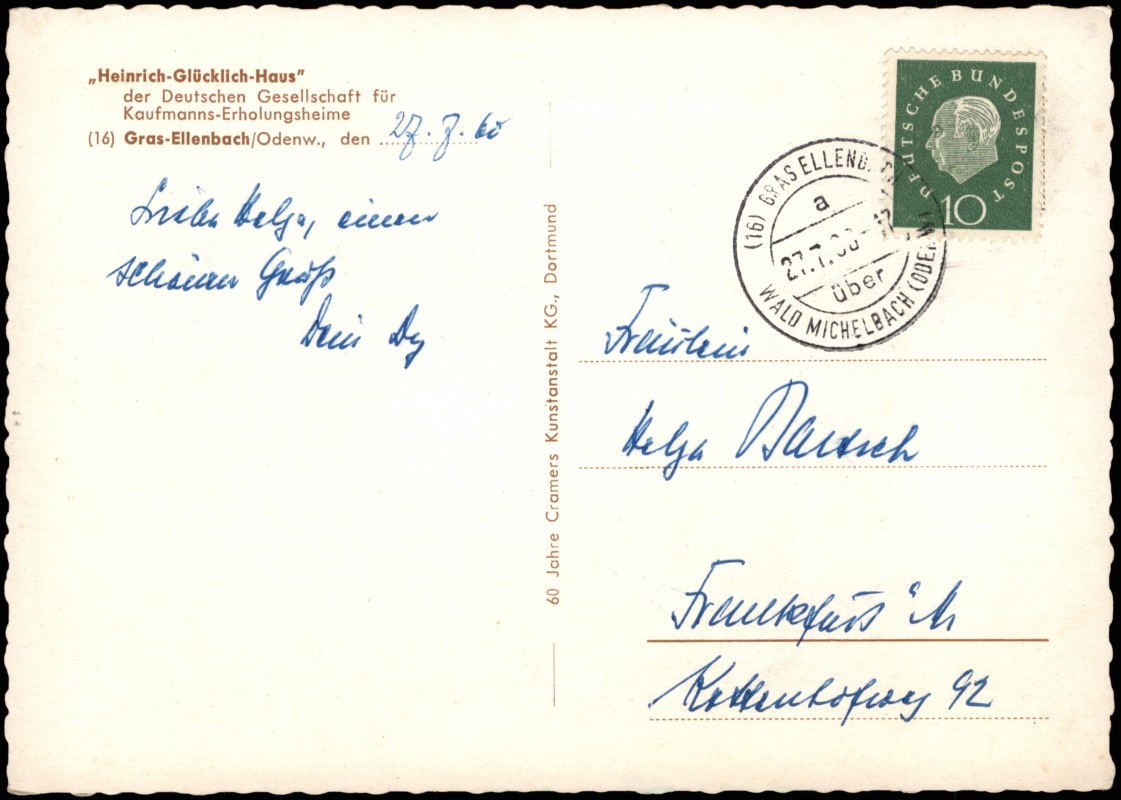 „Heinrich-Glücklich-Haus"
der Deutschen Gesellschaft für
Kaufmanns-Erholungsheime
(16) Gras-Ellenbach/Odenw., den 27. 7. 60
Liebe Helga, einen
schönen Gruß
Dein
60 Jahre Cramers Kunstanstalt KG., Dortmund
DEUTSCHE BUNDESPOST
10
(16) GRASELLENBACH
a
27.7.60
über
WALD MICHELBACH (ODENW)
Fräulein
Helga Bartsch
Frankfurt a/M
Kettenhofweg 92